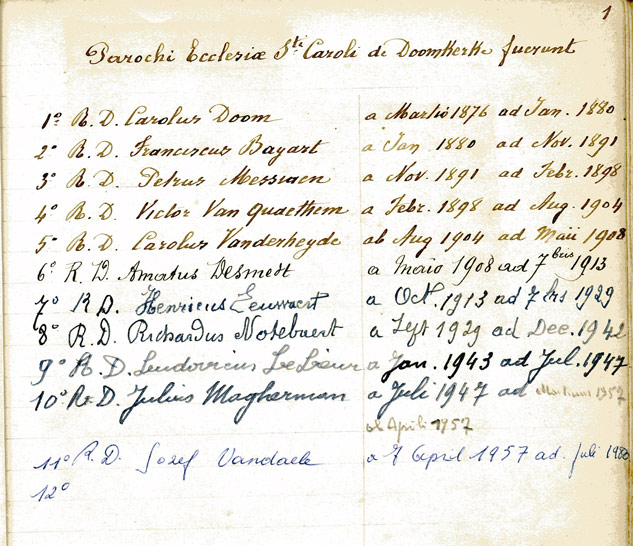 1
Parochi Ecclesiæ Sti Caroli de Doomkerke fuerunt
1º R. D. Carolus Doom a Martio 1876 ad Jan. 1880
2º R. D. Franciscus Bayart a Jan 1880 ad Nov. 1891
3º R. D. Petrus Messiaen a Nov. 1891 ad Febr. 1898
4º R. D. Victor Van Quaethem a Febr. 1898 ad Aug. 1904
5º R. D. Carolus Vanderheyde ab Aug 1904 ad Maii 1908
6º R. D. Amatus Desmedt a Maio 1908 ad 7bris 1913
7º R D. Henricus a Oct. 1913 ad 7brs 1929
8º R. D. Richardus Notebaert a Sept 1929 ad Dec. 1942
9º R. D. Ludovicus a Jan. 1943 ad Jul. 1947
10º R. D. Julius Magherman a Juli 1947 ad Martium 1957
ab Aprili 1957
11º R. D. Jozef Vandaele a 7 April 1957 ad. Juli 1980
12º